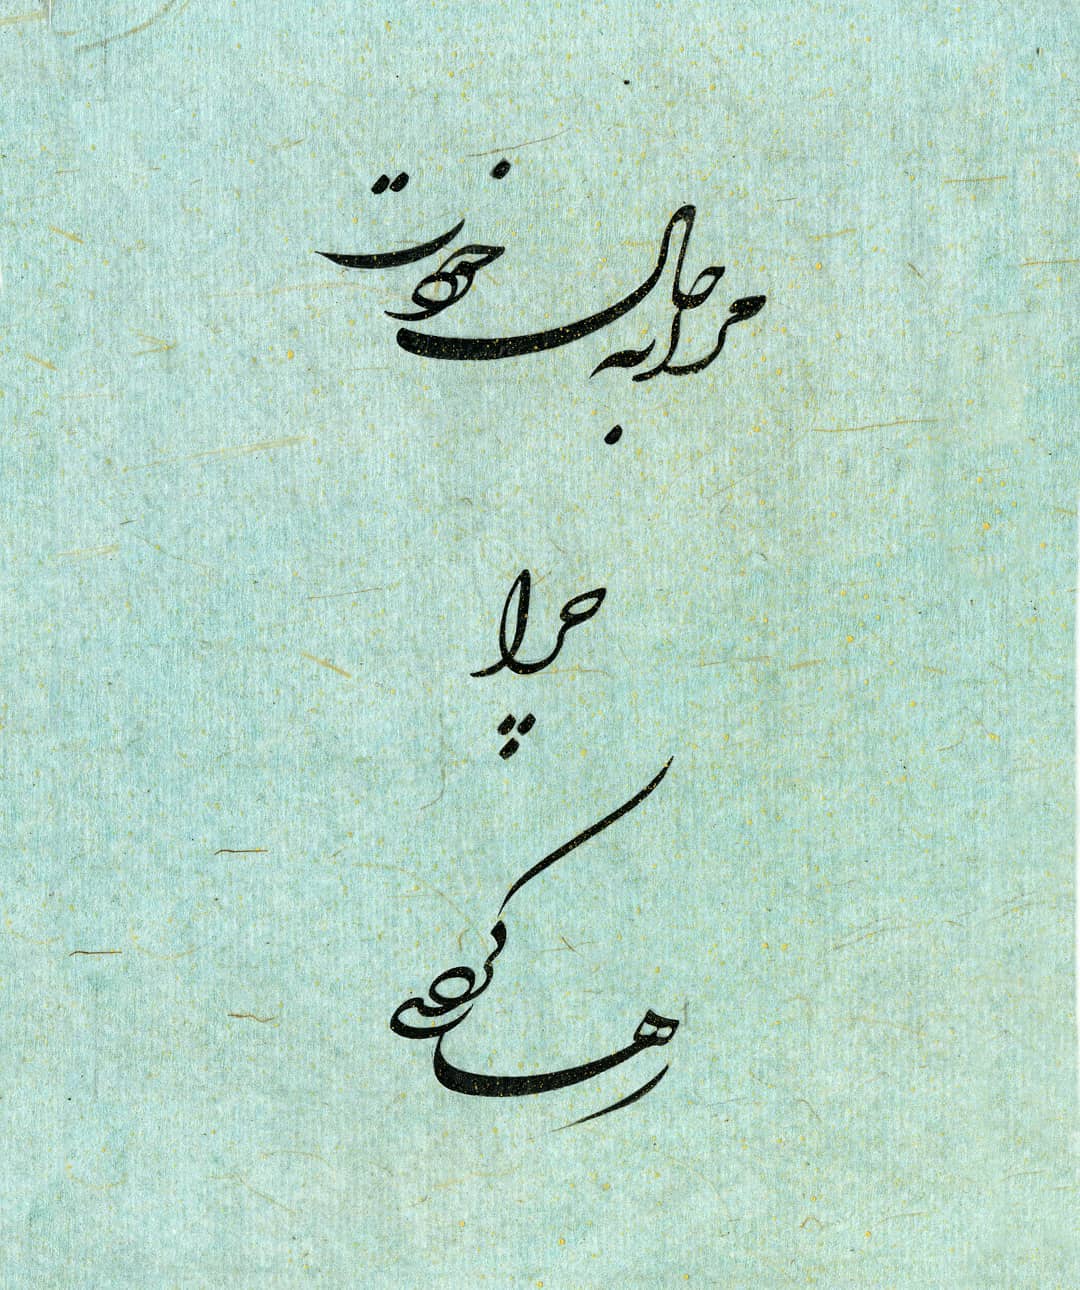 مرا به حال خودت
چرا
رها کردی